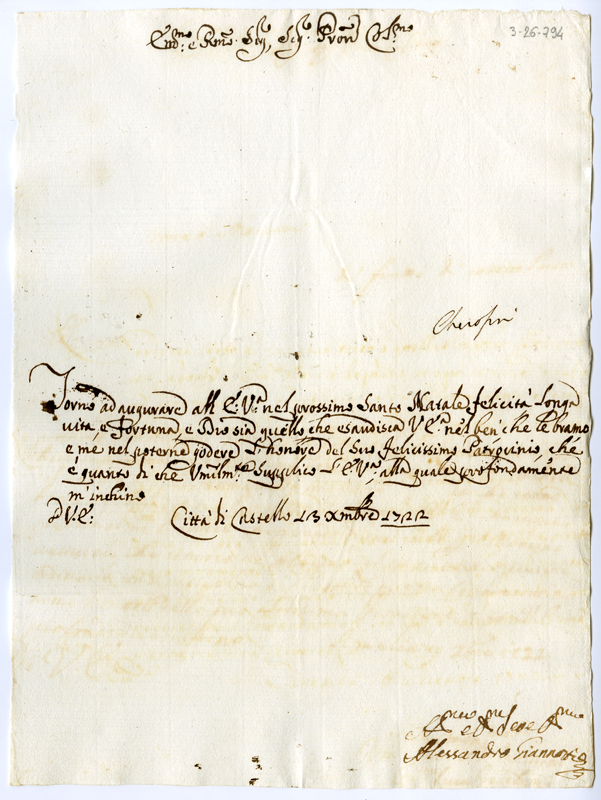 Em.mo e Rmo. Sig. Sig. Pron Col.mo
3-26-794
Cherofini
Torno ad augurare all E: V.a nel prossimo Santo Natale felicità longa
vita, e Fortuna, e Idio sia quello che esaudisca V. E.a nel ben' che le bramo
e me nel poterne godere l'honore del Suo felicissimo Patrocinio, che
e quanto di che Umilm.te Supplico L'E: V.a, alla quale profondamente
m'inchino
D V. E:
Città di Castello 13 Xmbre 1722
Alessandro Giannotti